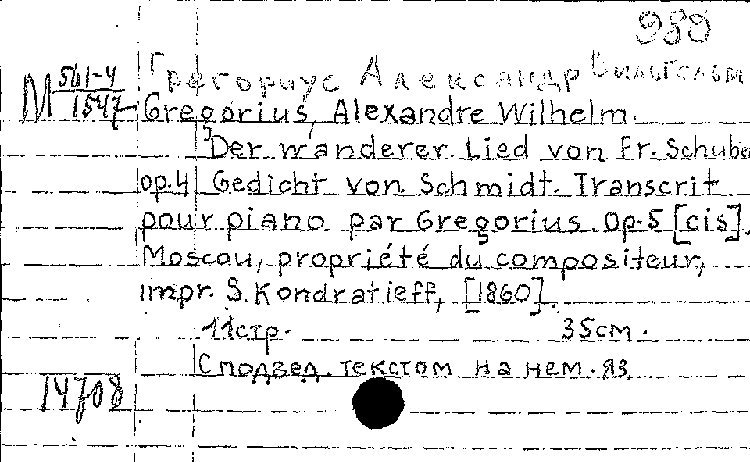 989
Грегориус Александр Вильгельм
М 561-4
1547
Gregorius, Alexandre Wilhelm.
Der wanderer. Lied von Fr. Schube
op.4 Gedicht von Schmidt. Transcrit
pour piano par Gregorius. Op.5 [cis].
Moscou, propriété du compositeur,
impr. S. Kondratieff, [1860].
11стр. 35см.
С подвед. текстом на нем. яз
14708